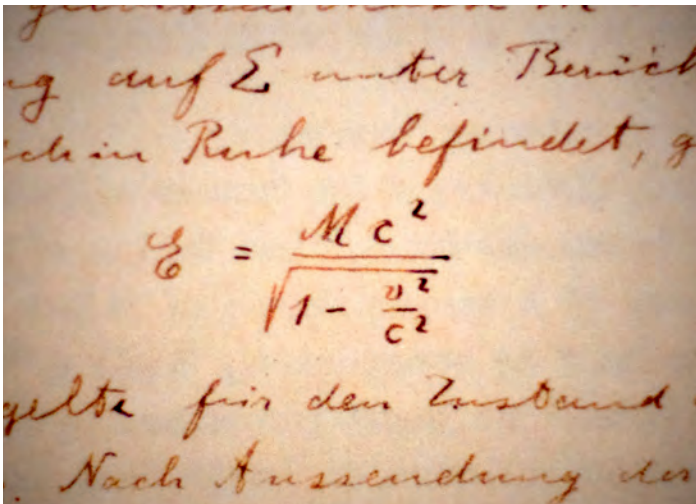 auf Σ unter
in Ruhe befindet, g
E = M c² / √(1 − v²/c²)
gelte für den Zustand
. Nach Aussendung der